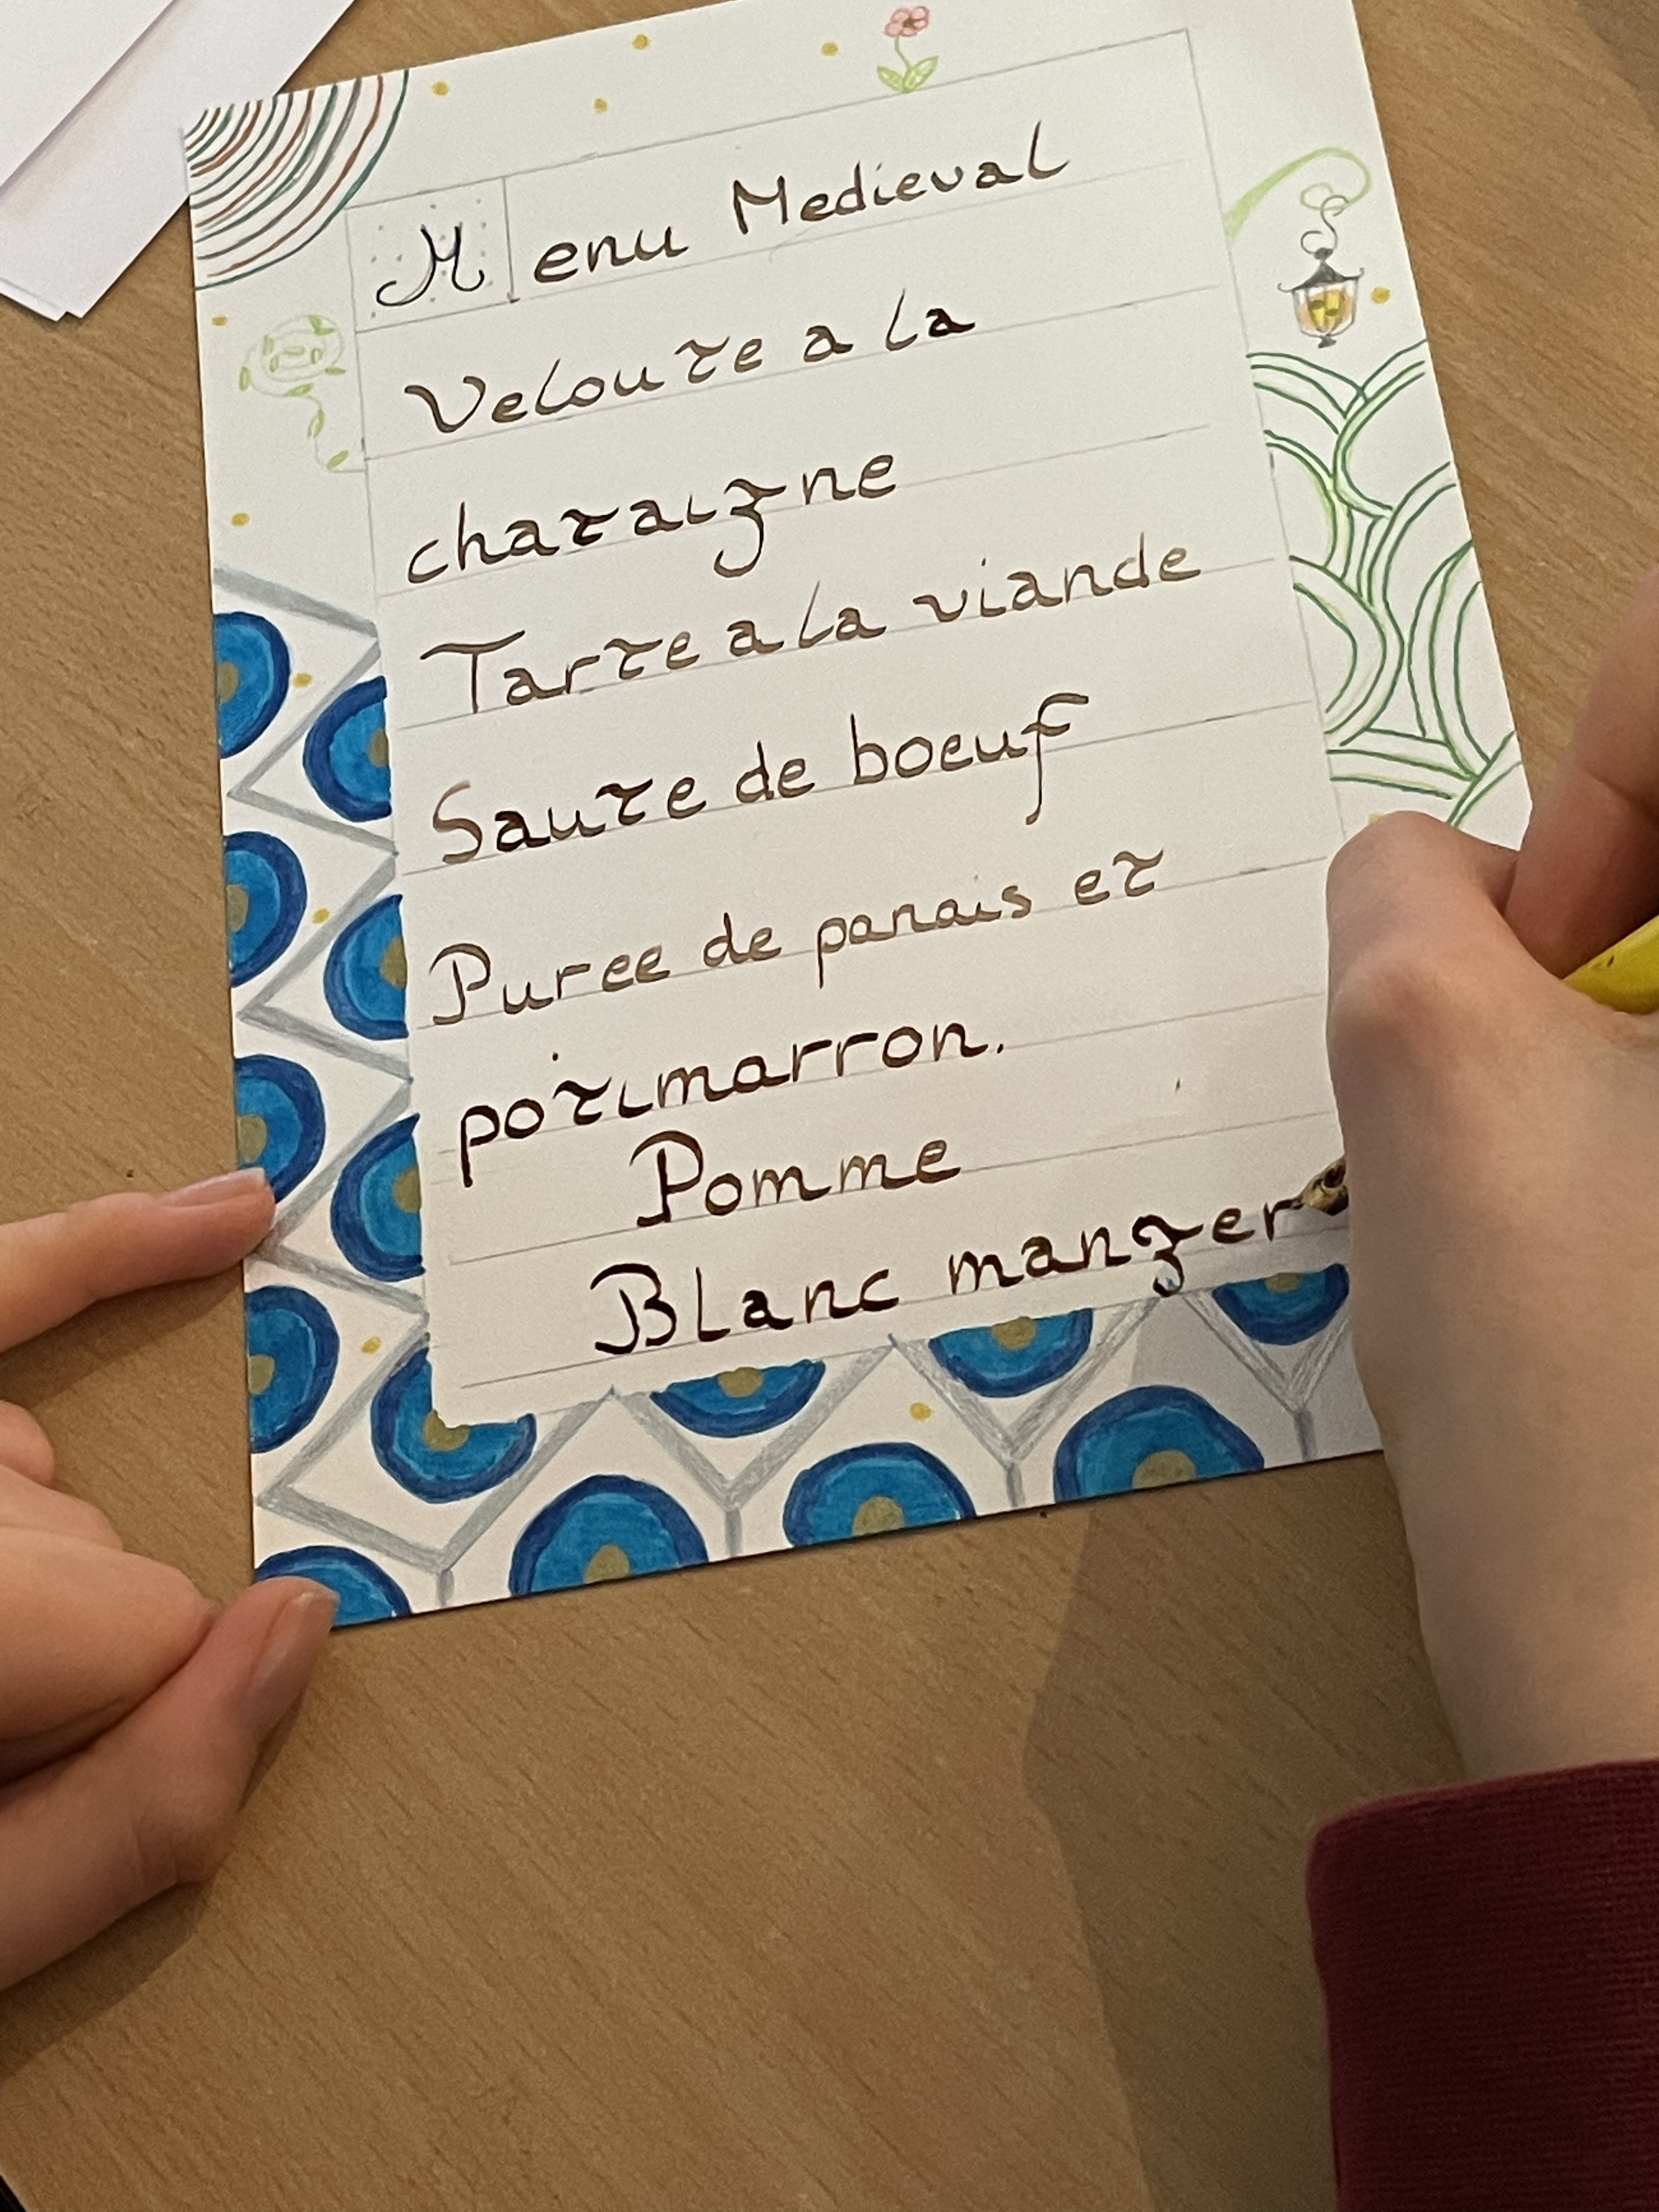 Menu Medieval
Veloute a la
chataigne
Tarte a la viande
Saute de boeuf
Puree de panais et
potimarron.
Pomme
Blanc manger